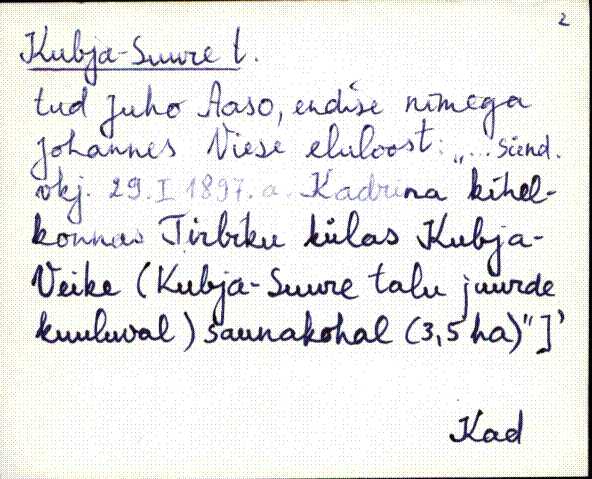 2
Kubja-Suure t.
tud Juho Aaso, endise nimega
Johannes Niese eluloost: „... sünd.
vkj. 29.I 1897. a. Kadrina kihel-
konnas Tirbiku külas Kubja-
Veike (Kubja-Suure talu juurde
kuuluval) saunakohal (3,5 ha)"]'
Kad